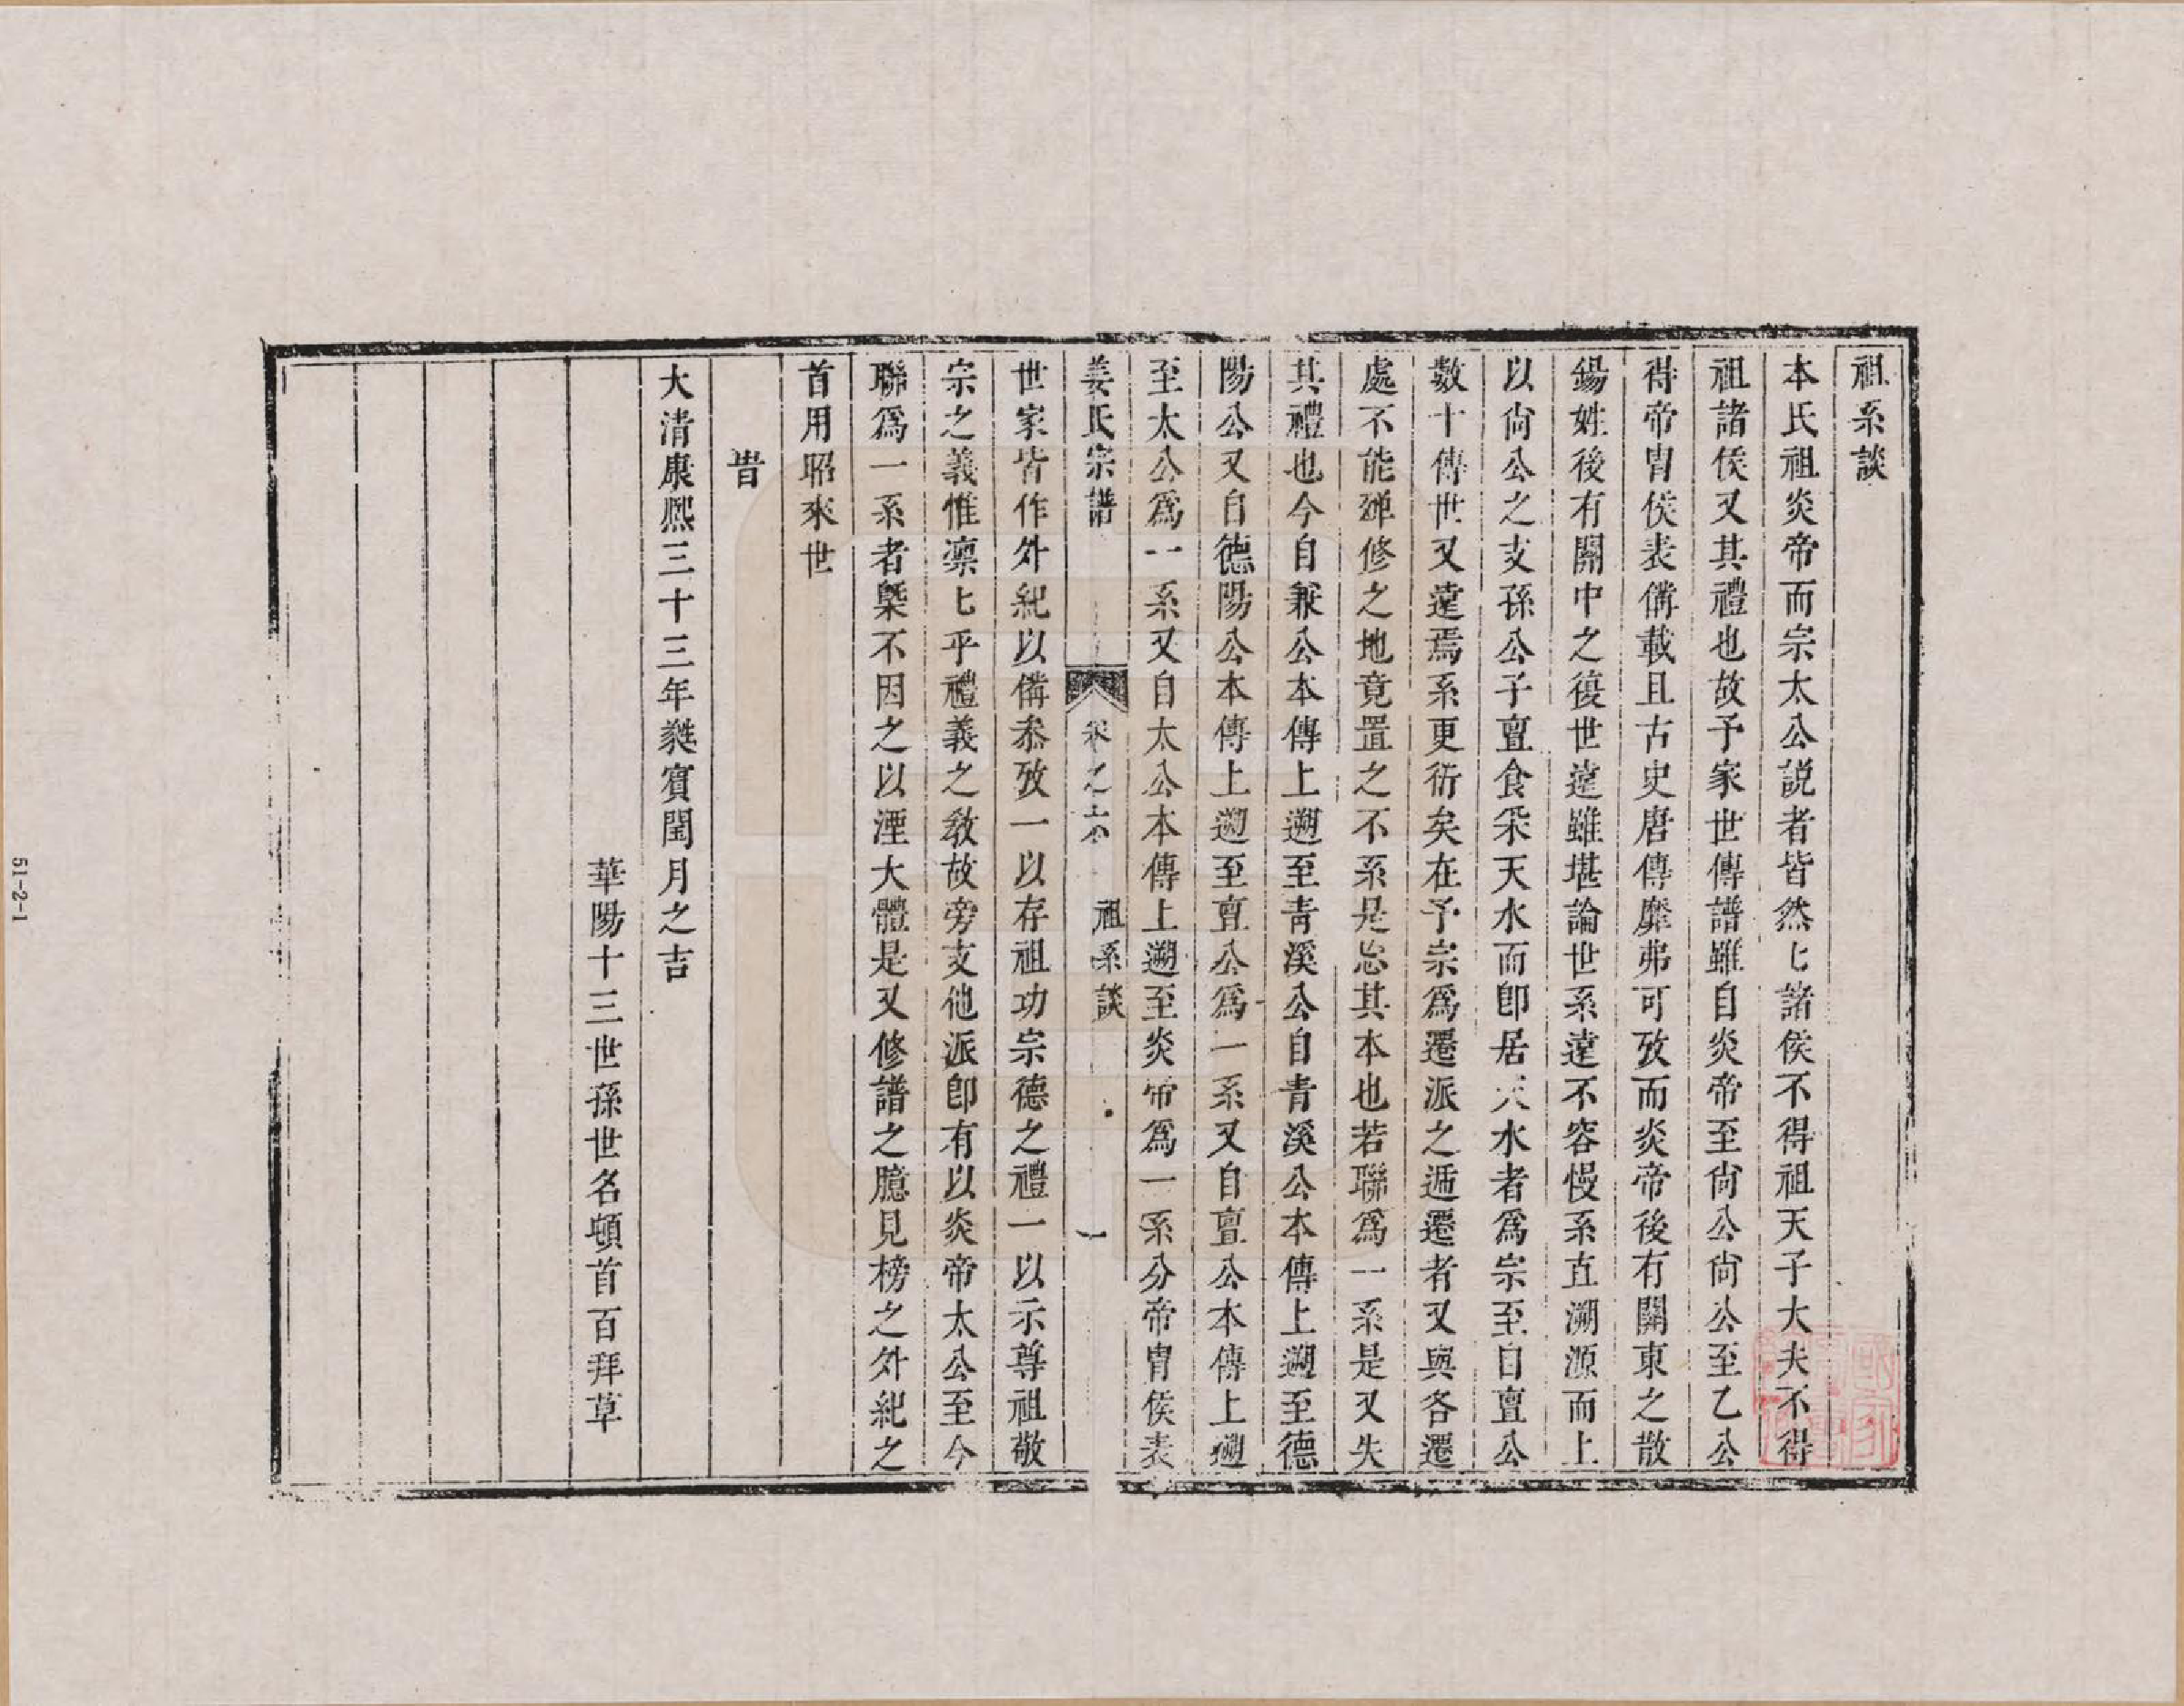 祖系談
本氏祖炎帝而宗太公説者皆然匕諸侯不得祖天子大夫不得
祖諸侯又其禮也故予家世傳譜雖自炎帝至尙公尙公至乙公
得帝胄侯表備載且古史唐傳靡弗可攷而炎帝後有關東之散
錫姓後有關中之復世遠雖堪論世系遠不容慢系直溯源而上
以尙公之支孫公子亶食采天水而卽居天水者爲宗至自亶公
數十傳世又遠焉系更衍矣在予宗爲遷派之遞遷者又與各遷
處不能殫修之地竟置之不系是忘其本也若聯爲一系是又失
其禮也今自兼公本傳上遡至青溪公自青溪公本傳上遡至德
陽公又自德陽公本傳上遡至亶公爲一系又自亶公本傳上遡
至太公爲一系又自太公本傳上遡至炎帝爲一系分帝胄侯表
姜氏宗譜 卷之 祖系談 一
世家皆作外紀以備叅攷一以存祖功宗德之禮一以示尊祖敬
宗之義惟凛匕乎禮義之教故旁支他派卽有以炎帝太公至今
聯爲一系者槩不因之以湮大體是又修譜之臆見榜之外紀之
首用昭來世
旹
大清康熙三十三年蕤賓閏月之吉
華陽十三世孫世名頓首百拜草
51-2-1